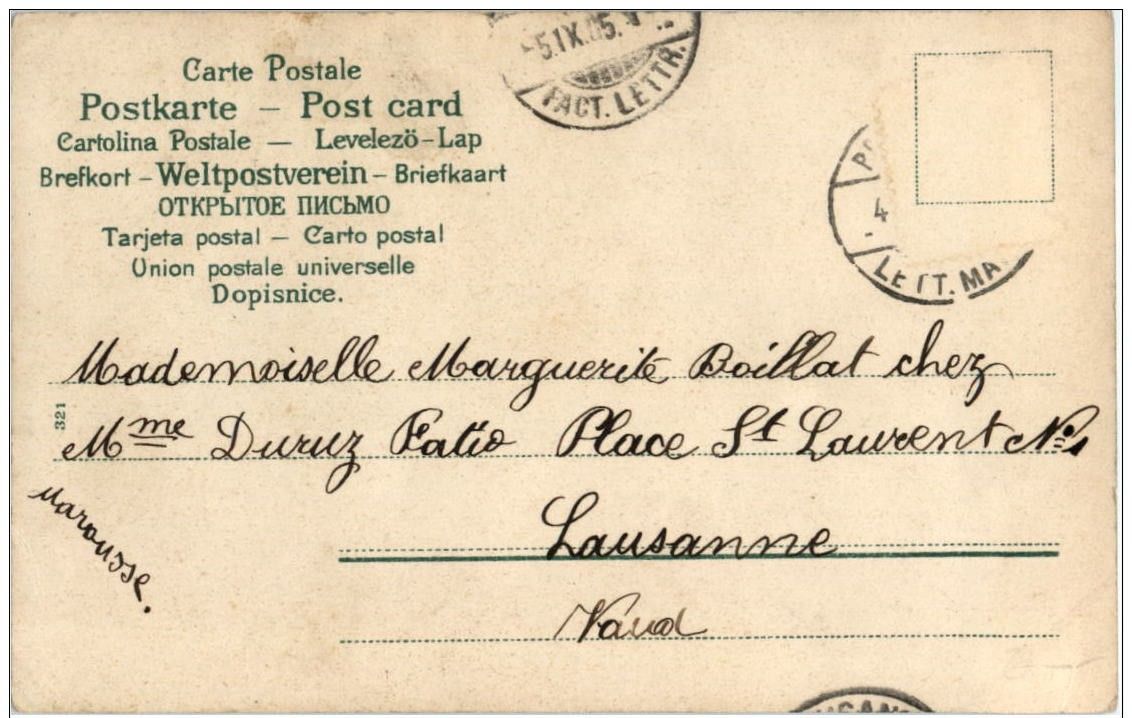 5.IX.05.
FACT. LETTR.
Carte Postale
Postkarte – Post card
Cartolina Postale — Levelezö-Lap
Brefkort – Weltpostverein – Briefkaart
ОТКРЫТОЕ ПИСЬМО
Tarjeta postal — Carto postal
Union postale universelle
Dopisnice.
4
LETT. MA
Mademoiselle Marguerite Boillat chez
321
Mme Duruz Fatio Place St Laurent No 1
Lausanne
Marousse.
Vaud